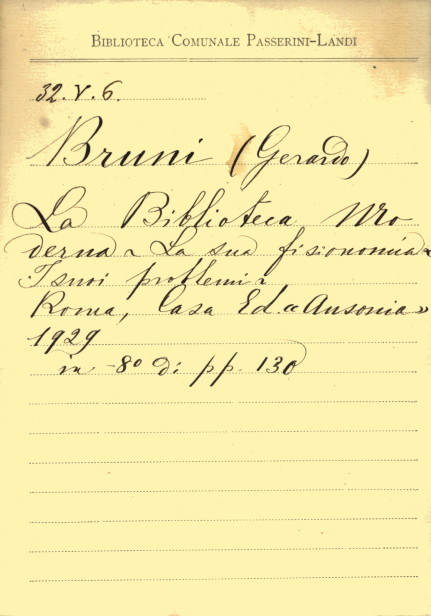 BIBLIOTECA COMUNALE PASSERINI-LANDI
32.V.6.
Bruni (Gerardo)
La Biblioteca Mo
derna - La sua fisionomia -
I suoi problemi -
Roma, Casa Ed. "Ausonia"
1929
in -8º di pp. 130